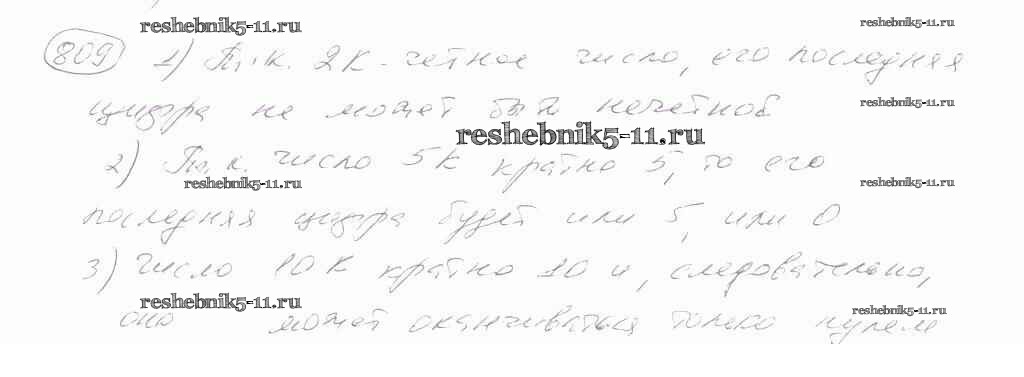 reshebnik5-11.ru
reshebnik5-11.ru
809 1) Т.к. 2к - четное число, его последняя
цифра не может быть нечетной
reshebnik5-11.ru
reshebnik5-11.ru
2) Т.к. число 5к кратно 5, то его
reshebnik5-11.ru
reshebnik5-11.ru
последняя цифра будет или 5, или 0
3) Число 10к кратно 10 и, следовательно,
reshebnik5-11.ru
reshebnik5-11.ru
оно может оканчиваться только нулем